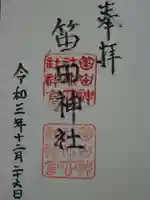 奉拝
笛田神社
令和三年十二月二十六日